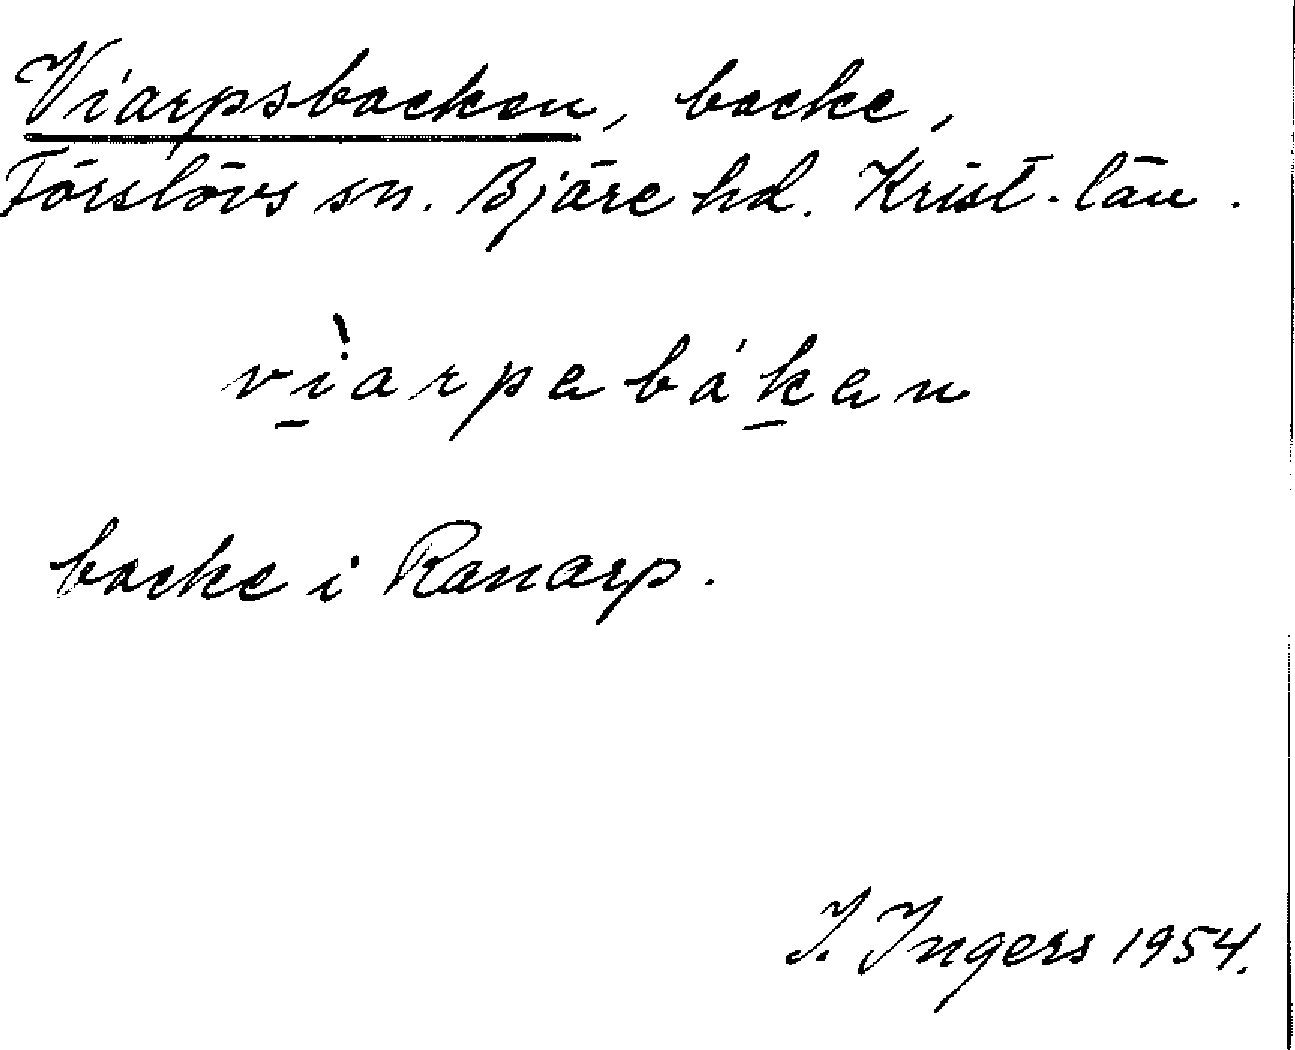 Viarpsbacken, backe,
Förslövs sn. Bjäre hd. Krist. län.
vìarpabákan
backe i Ranarp.
I. Ingers 1954.